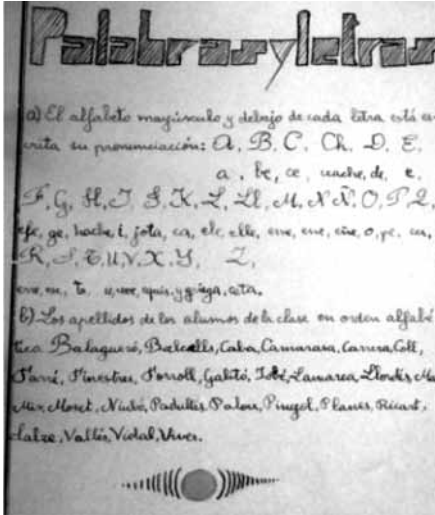 Palabras y letras
a) El alfabeto mayúsculo y debajo de cada letra está es
crita su pronunciación: A, B, C, Ch, D, E,
a, be, ce, de, e,
F, G, H, I, J, K, L, Ll, M, N, Ñ, O, P, Q,
efe, ge, hache, i, jota, ca, ele, elle, eme, ene, eñe, o, pe, cu,
R, S, T, U, V, X, Y, Z,
erre, ese, te, u, uve, equis, y griega, ceta.
b) Los apellidos de los alumnos de la clase en orden alfabé
tico Balagueró, Balcells, Caba, Camarasa, Carrera, Coll,
Farré, Finestres, Forroll, Gabitó, Lamarca
Mir, Moret, Niubó, Pinyol, Planes, Ricart,
Vallés, Vidal, Vives.